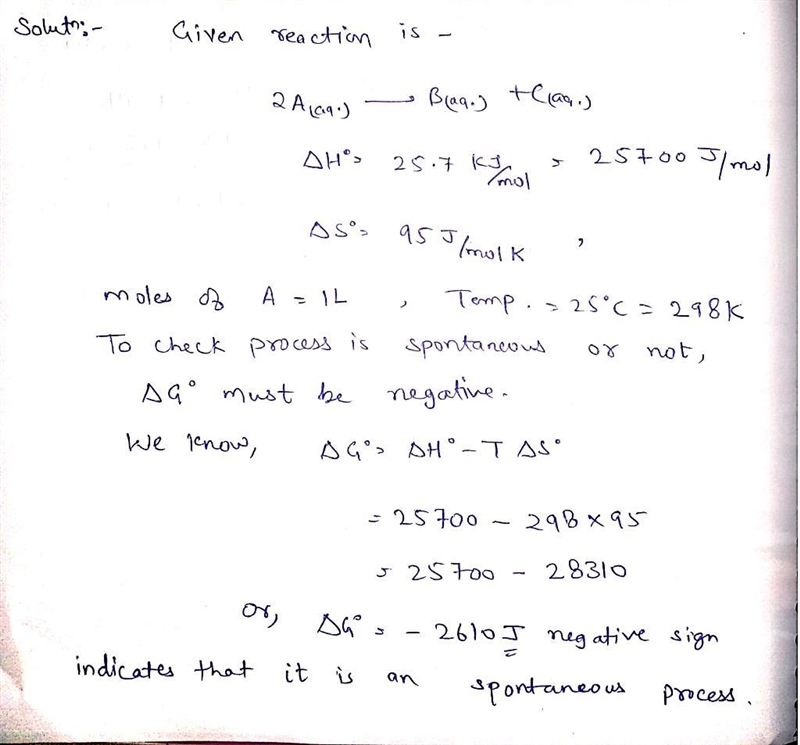 Solutn:- Given reaction is -
2A(aq.) ⟶ B(aq.) + C(aq.)
ΔH° = 25.7 KJ/mol = 25700 J/mol
ΔS° = 95 J/mol K ,
moles of A = 1L , Temp. = 25°C = 298K
To check process is spontaneous or not,
ΔG° must be negative.
We know, ΔG° = ΔH° - T ΔS°
= 25700 - 298 × 95
= 25700 - 28310
or, ΔG° = - 2610 J negative sign
indicates that it is an spontaneous process.